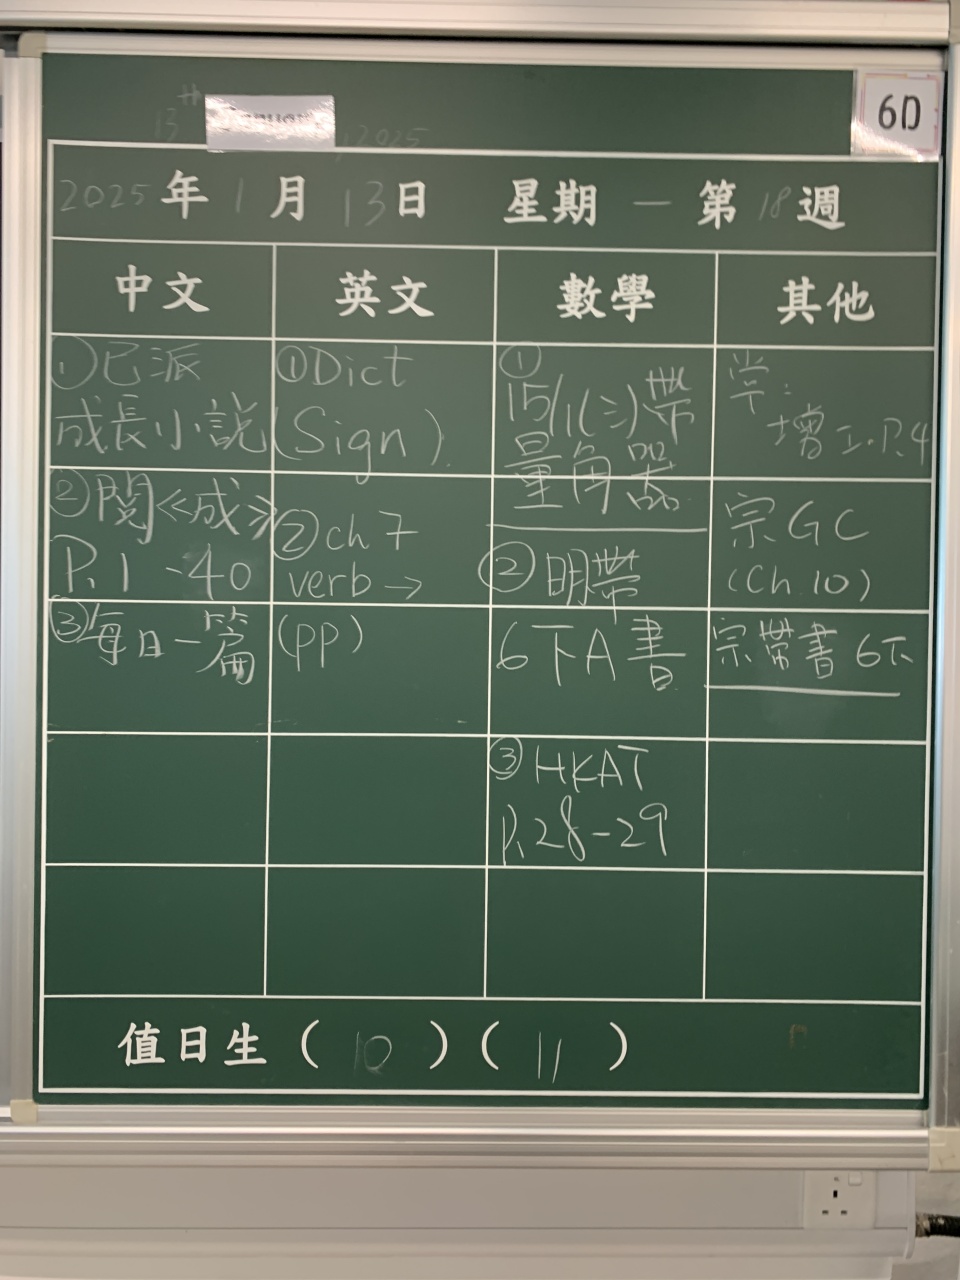 13th January, 2025
6D
2025年1月13日 星期一 第18週
中文 英文 數學 其他
①已派
成長小說
②閱《成》
P.1-40
③每日一篇
①Dict
(Sign).
②ch 7
verb →
(pp)
①
15/1(三)帶
量角器
②明帶
6下A書
③HKAT
P.28-29
常:
增工.P.4
宗GC
(Ch.10)
宗帶書6下
值日生(10)(11)